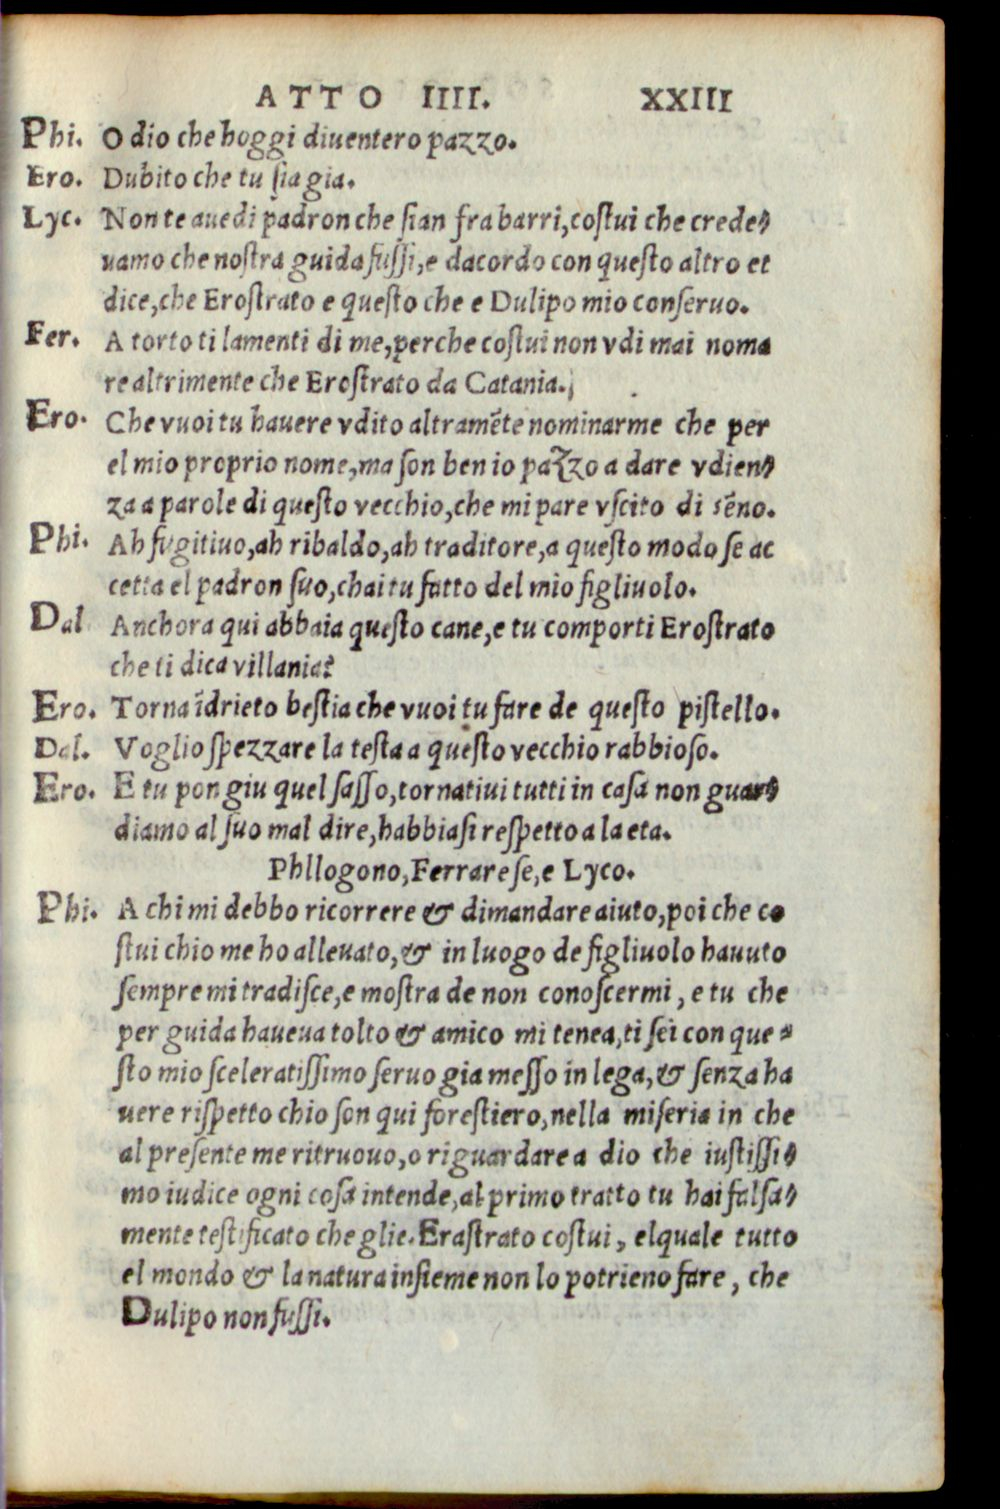 ATTO IIII. XXIII
Phi. O dio che hoggi diuentero pazzo.
Ero. Dubito che tu sia gia.
Lyc. Non te auedi padron che sian fra barri, costui che crede-
uamo che nostra guida fussi, e dacordo con questo altro et
dice, che Erostrato e questo che e Dulipo mio conseruo.
Fer. A torto ti lamenti di me, perche costui non vdi mai noma
re altrimente che Erostrato da Catania.
Ero. Che vuoi tu hauere vdito altramẽte nominarme che per
el mio proprio nome, ma son ben io pazzo a dare vdien-
za a parole di questo vecchio, che mi pare vscito di sẽno.
Phi. Ah fugitiuo, ah ribaldo, ah traditore, a questo modo se ac
cetta el padron suo, chai tu fatto del mio figliuolo.
Dal Anchora qui abbaia questo cane, e tu comporti Erostrato
che ti dica villania?
Ero. Torna ĩdrieto bestia che vuoi tu fare de questo pistello.
Dal. Voglio spezzare la testa a questo vecchio rabbioso.
Ero. E tu pon giu quel sasso, tornatiui tutti in casa non guar-
diamo al suo mal dire, habbiasi respetto a la eta.
Phllogono, Ferrarese, e Lyco.
Phi. A chi mi debbo ricorrere & dimandare aiuto, poi che co
stui chio me ho alleuato, & in luogo de figliuolo hauuto
sempre mi tradisce, e mostra de non conoscermi, e tu che
per guida haueua tolto & amico mi tenea, ti sei con que-
sto mio sceleratissimo seruo gia messo in lega, & senza ha
uere rispetto chio son qui forestiero, nella miseria in che
al presente me ritruouo, o riguardare a dio che iustissi-
mo iudice ogni cosa intende, al primo tratto tu hai falsa-
mente testificato che glie. Erastrato costui, elquale tutto
el mondo & la natura insieme non lo potrieno fare, che
Dulipo non fussi.